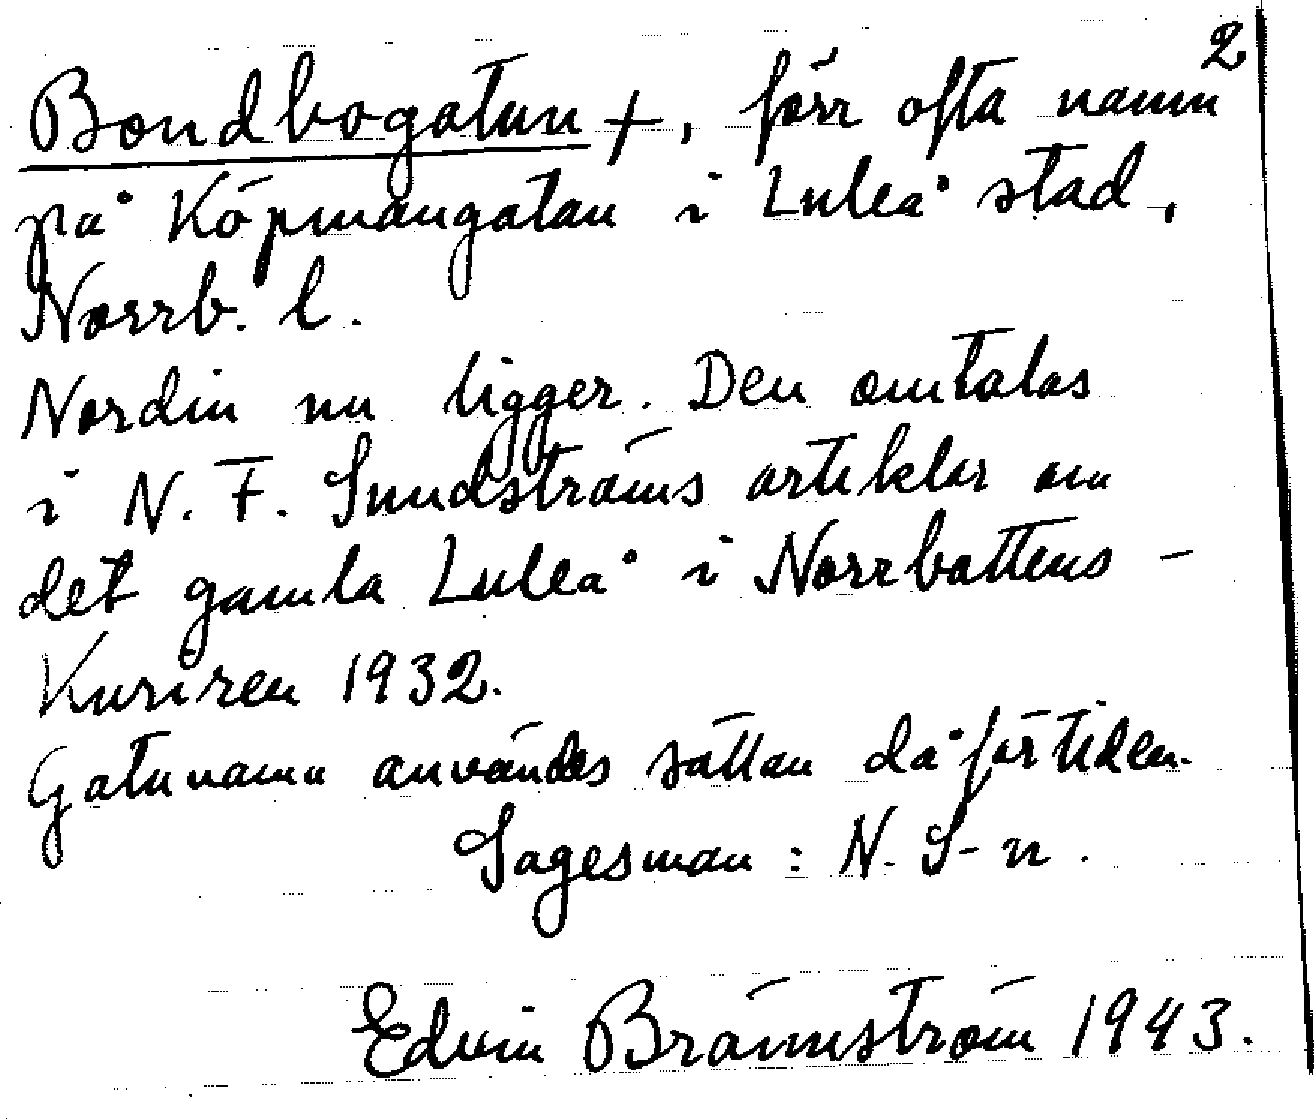 2
Bondbogatan +, förr ofta namn
på Köpmangatan i Luleå stad,
Norrb. l.
Nordin nu ligger. Den omtalas
i N. F. Sundströms artiklar om
det gamla Luleå i Norrbottens-
Kuriren 1932.
Gatunamn användes sällan då för tiden.
Sagesman: N. S-n.
Edvin Brännström 1943.